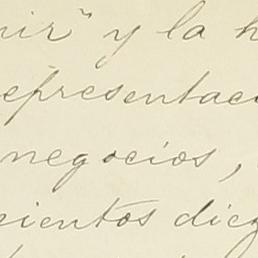 nir" y la h
epresentaci
negocios,
cientos diez